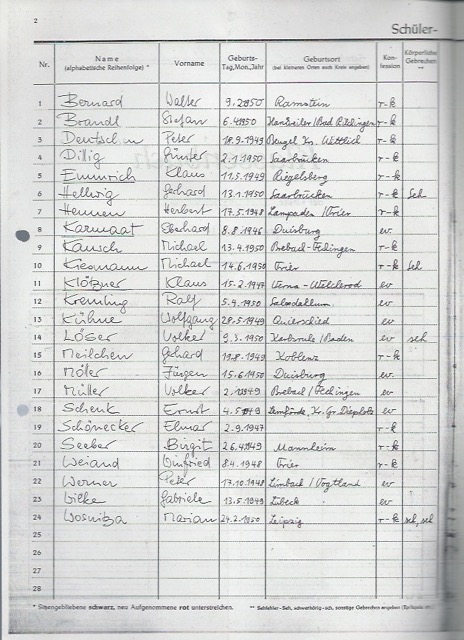 2
Schüler-
Nr. Name (alphabetische Reihenfolge) * Vorname Geburts- Tag, Mon., Jahr Geburtsort (bei kleineren Orten auch Kreis angeben) Kon- fession Körperliche Gebrechen **
1 Bernard Walter 9.2.1950 Ramstein r-k
2 Brandl Stefan 6.4.1950 Hanweiler/Bad Rilchingen r-k
3 Deutschen Peter 18.9.1949 Bengel Kr. Wittlich r-k
4 Dillig Günter 2.1.1950 Saarbrücken r-k
5 Emmrich Klaus 11.5.1949 Riegelsberg r-k
6 Hellwig Gerhard 13.1.1950 Saarbrücken r-k Seh
7 Hennen Herbert 17.5.1948 Lampaden/Trier r-k
8 Karmaat Eberhard 8.8.1946 Duisburg ev
9 Kausch Michael 13.4.1950 Brebach-Fechingen r-k
10 Kiesmann Michael 14.6.1950 Trier r-k Seh
11 Klötzner Klaus 15.2.1947 ev
12 Kremling Ralf 5.4.1950 Salzdahlum ev
13 Kühne Wolfgang 28.5.1949 Quierschied ev
14 Löser Volker 9.3.1950 Karlsruhe/Baden ev seh
15 Meilchen Gerhard 19.8.1949 Koblenz r-k
16 Möller Jürgen 15.6.1950 Duisburg ev
17 Müller Volker 2.1949 Brebach/Fechingen ev
18 Schenk Ernst 4.5.1949 Lemförde, Kr. Gr. Diepholz ev
19 Schönecker Elmar 2.9.1947 r-k
20 Seeber Birgit 26.4.1949 Mannheim r-k
21 Weiand Winfried 8.4.1948 Trier r-k
22 Werner Peter 17.10.1948 Limbach/Vogtland ev
23 Wilke Gabriele 13.5.1949 Lübeck ev
24 Wosnitza Marian 24.2.1950 Leipzig r-k seh, seh
25
26
27
28
* Sitzengebliebene schwarz, neu Aufgenommene rot unterstreichen. ** Sehfehler - Seh, schwerhörig - sch, sonstige Gebrechen angeben